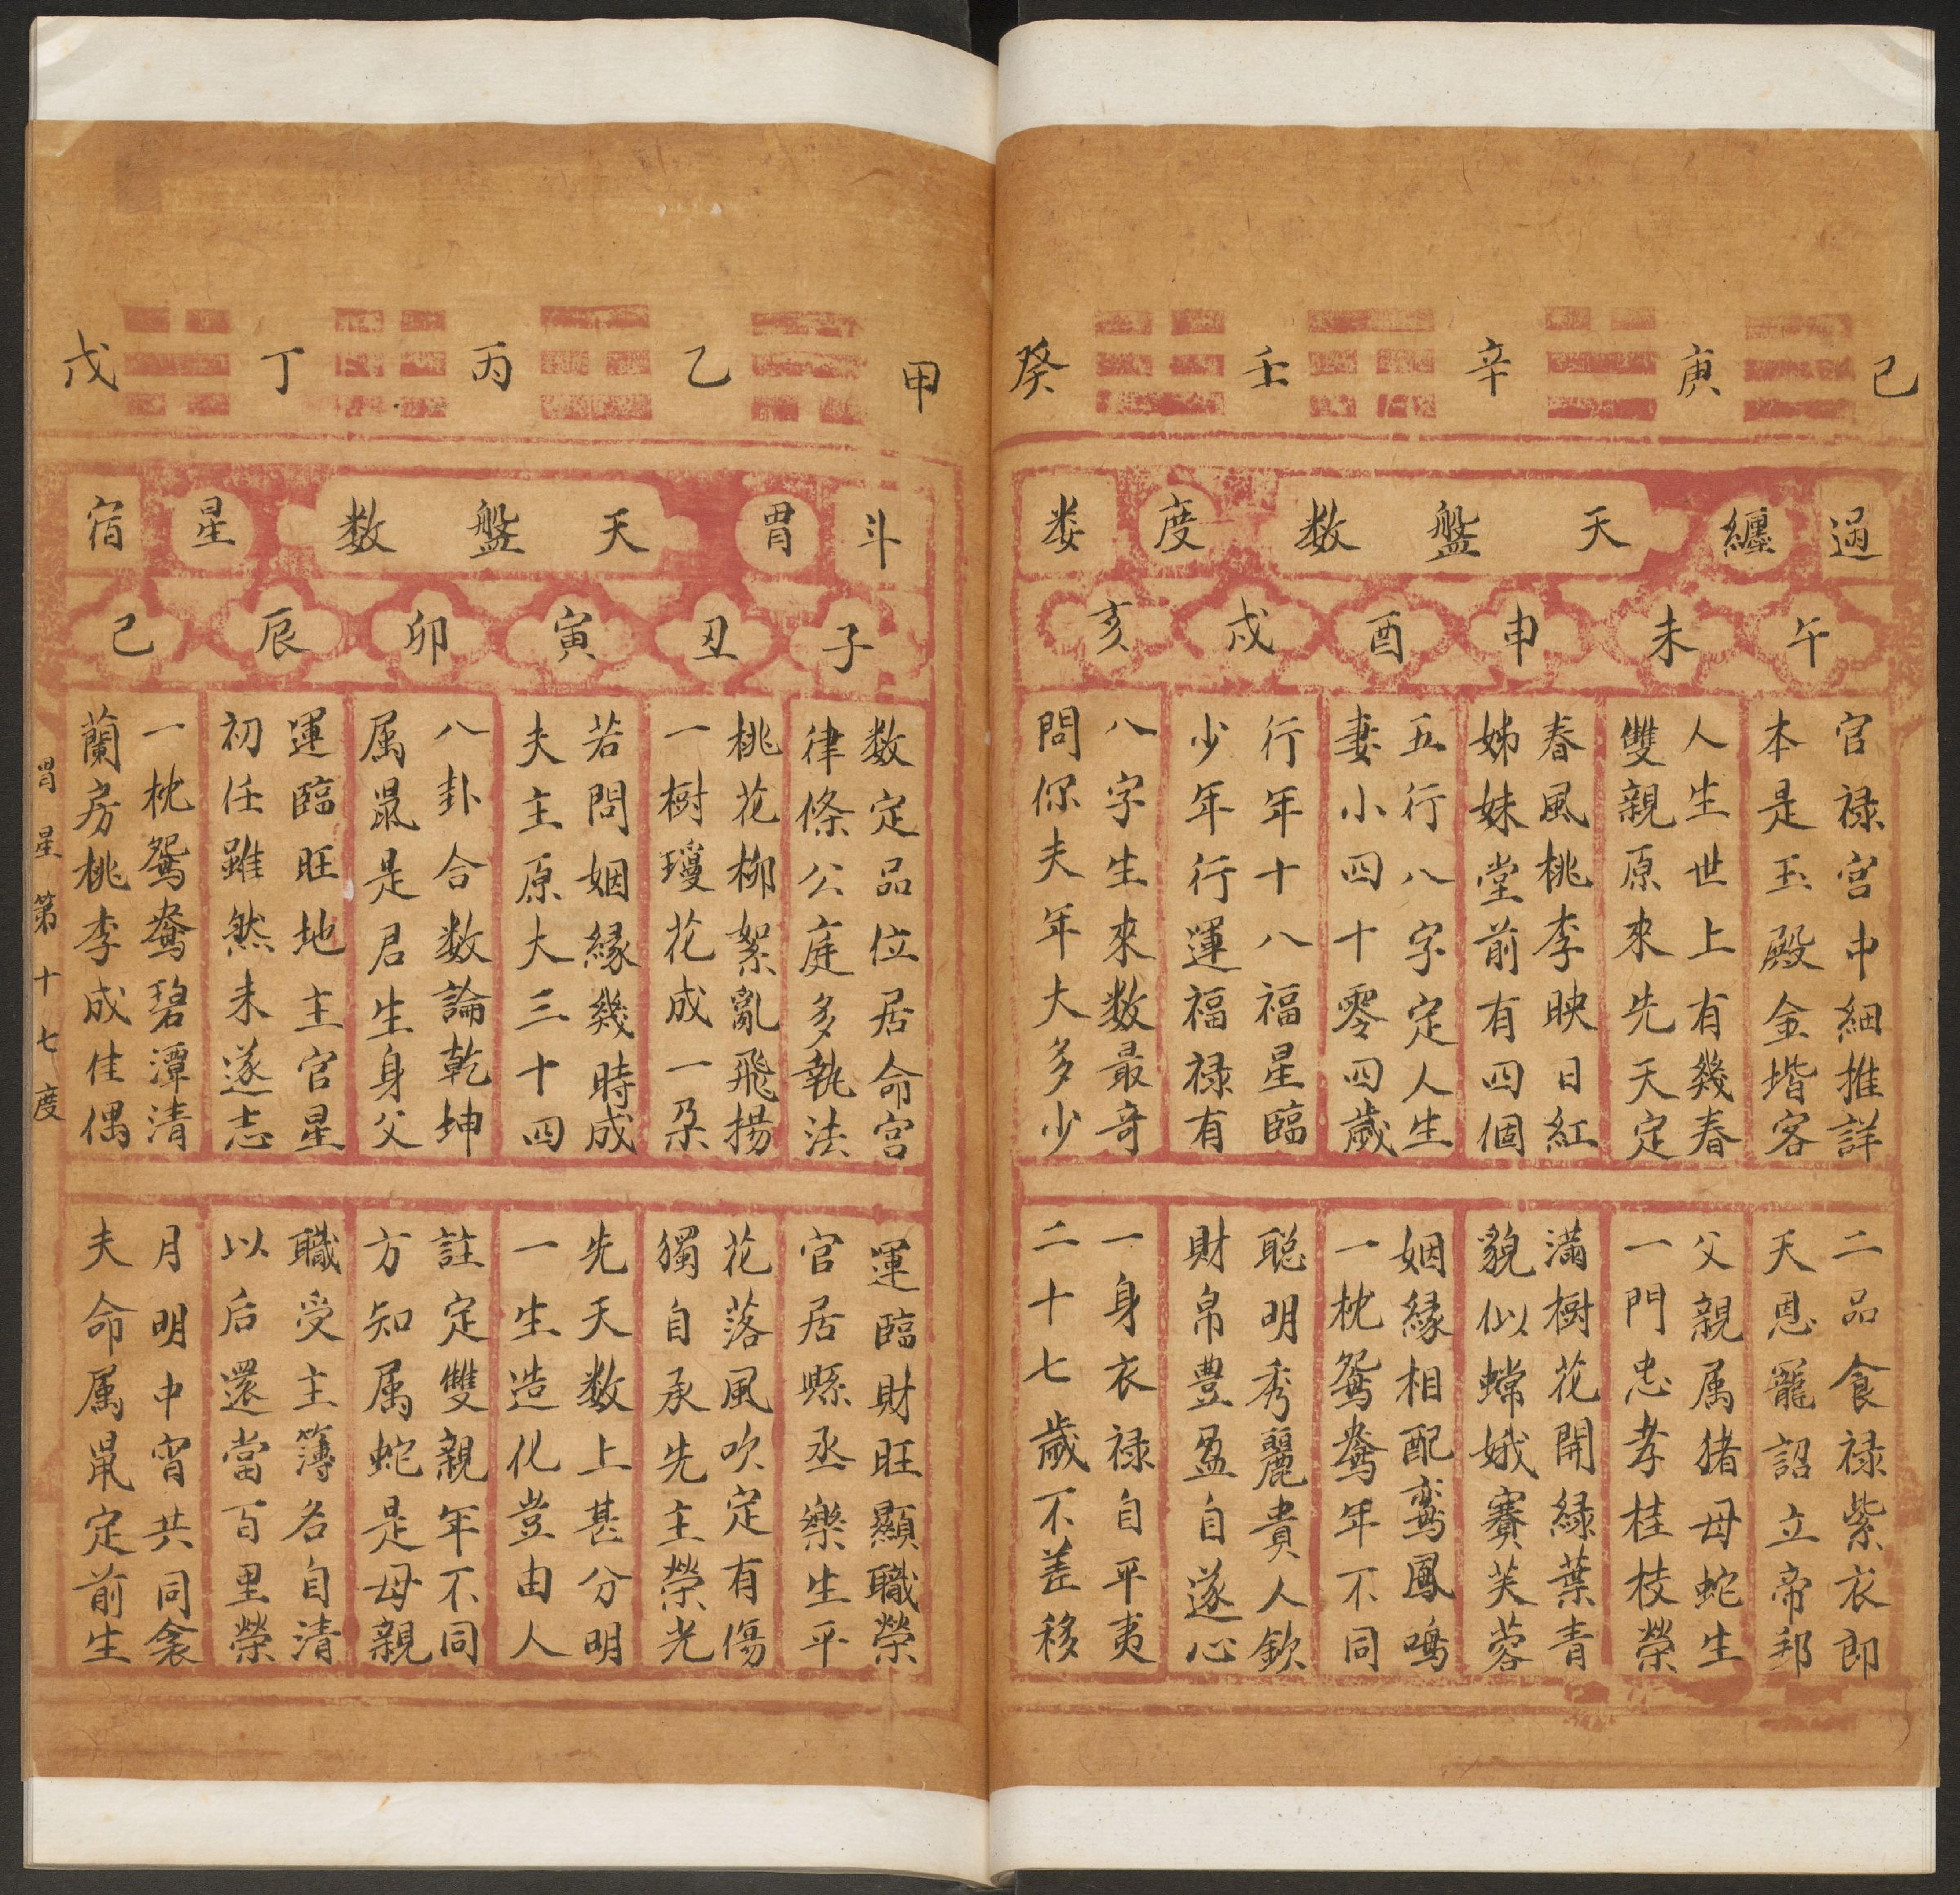 己 庚 辛 壬 癸
過 纏 天盤数 度 娄
午 未 申 酉 戌 亥
官禄宫中細推詳
本是玉殿金堦客
人生世上有幾春
雙親原來先天定
春風桃李映日紅
姊妹堂前有四個
五行八字定人生
妻小四十零四歲
行年十八福星臨
少年行運福禄有
八字生來数最奇
問你夫年大多少
二品食禄紫衣郎
天恩寵詔立帝邦
父親属猪母蛇生
一門忠孝桂枝榮
滿樹花開緑葉青
貌似嫦娥賽芙蓉
姻緣相配鸾鳳鳴
一枕鴛鴦年不同
聪明秀麗貴人欽
財帛豊盈自遂心
一身衣禄自平夷
二十七歲不差移
甲 乙 丙 丁 戊
斗 胃 天盤数 星 宿
子 丑 寅 卯 辰 巳
数定品位居命宫
律條公庭多執法
桃花柳絮亂飛揚
一樹瓊花成一朶
若問姻緣幾時成
夫主原大三十四
八卦合数論乾坤
属鼠是君生身父
運臨旺地主官星
初任雖然未遂志
一枕鴛鴦碧潭清
蘭房桃李成佳偶
運臨財旺顯職榮
官居縣丞樂生平
花落風吹定有傷
獨自承先主榮光
先天数上甚分明
一生造化豈由人
註定雙親年不同
方知属蛇是母親
職受主簿名自清
以后還當百里榮
月明中宵共同衾
夫命属鼠定前生
胃星第十七度